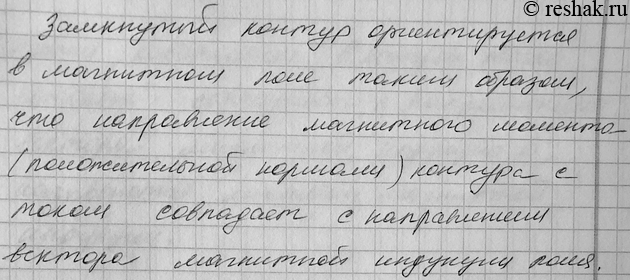 © reshak.ru
Замкнутый контур ориентируется
в магнитном поле таким образом,
что направление магнитного момента
(положительной нормали) контура с
током совпадает с направлением
вектора магнитной индукции поля.